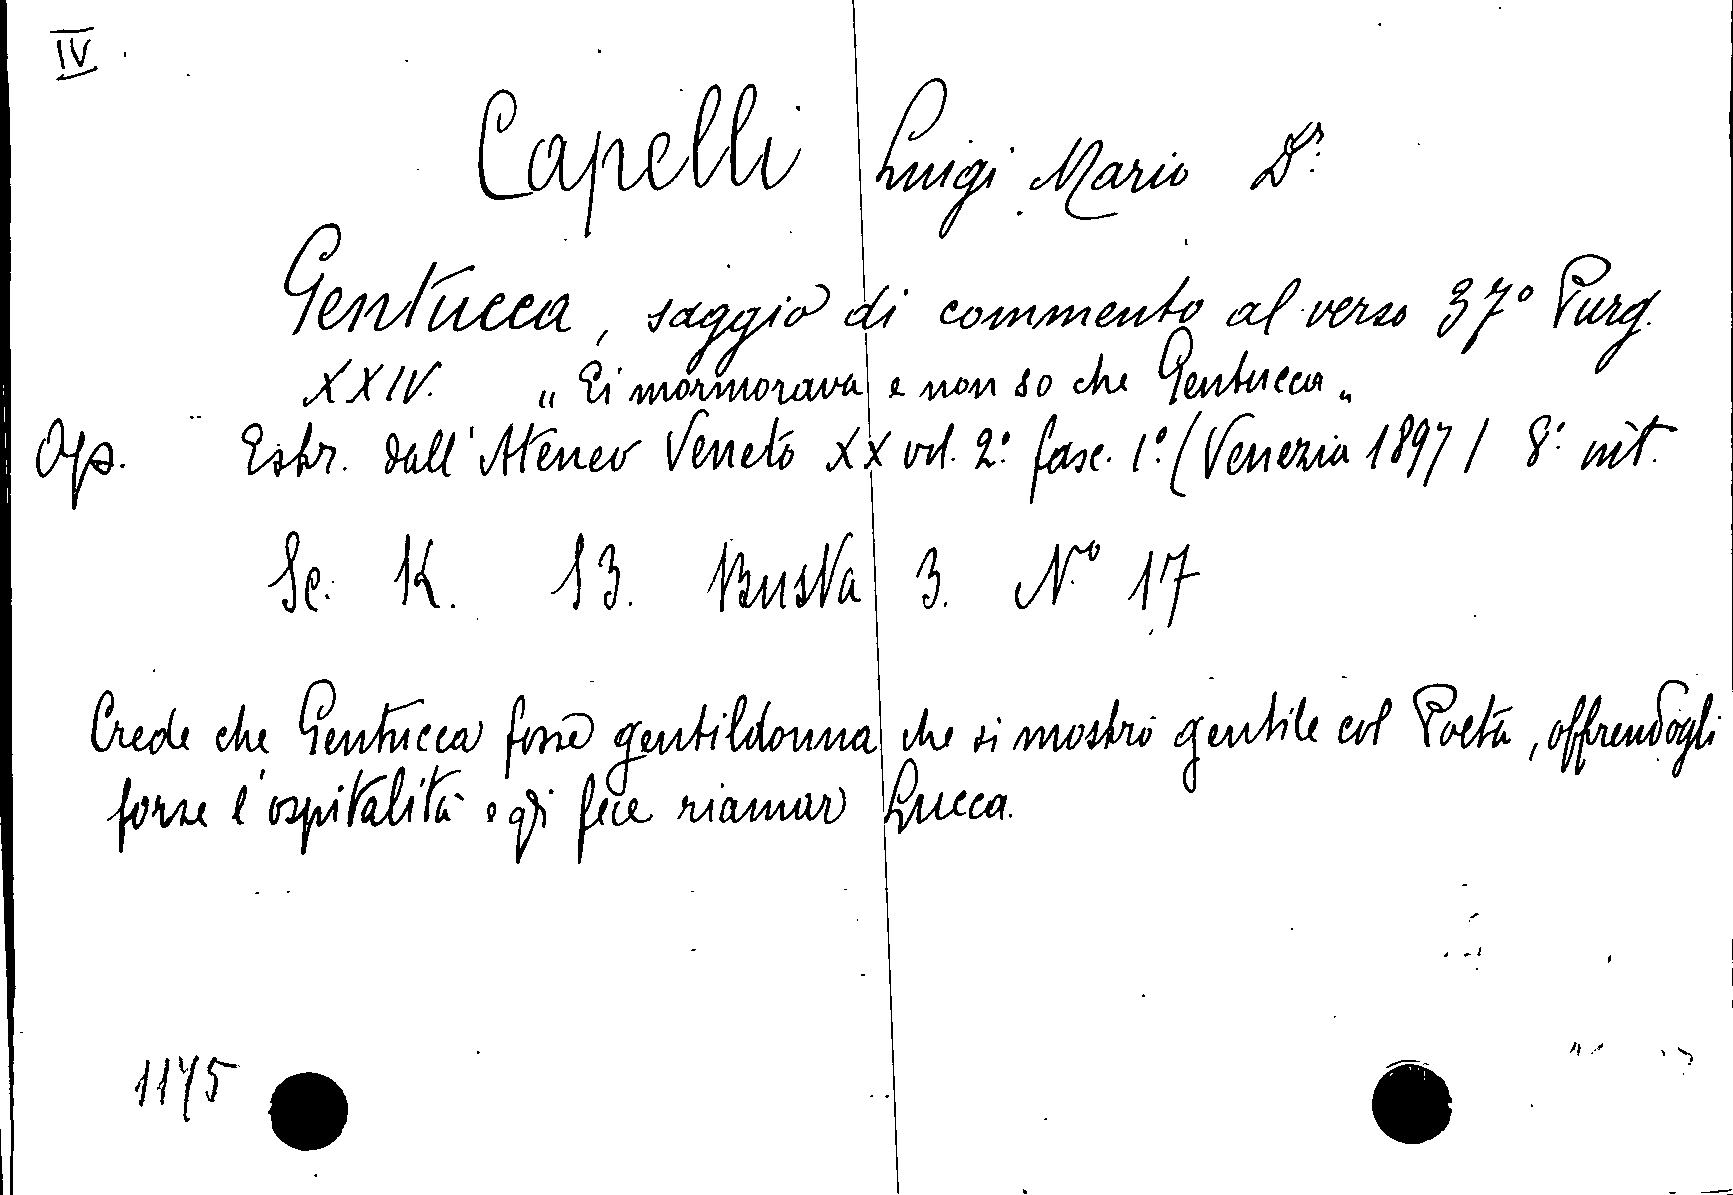 IV
Capelli Luigi Mario Dr.
Gentucca, saggio di commento al verso 37° Purg.
XXIV. „ Ei mormorava e non so che Gentucca „
Op. Estr. dall'Ateneo Veneto XX vol. 2.° fasc. 1.° (Venezia 1897) 8.° int.
Sc. K. 13. Busta 3. N.° 17
Crede che Gentucca fosse gentildonna che si mostrò gentile col Poeta, offrendogli
forse l'ospitalità e gli fece riamar Lucca.
1175